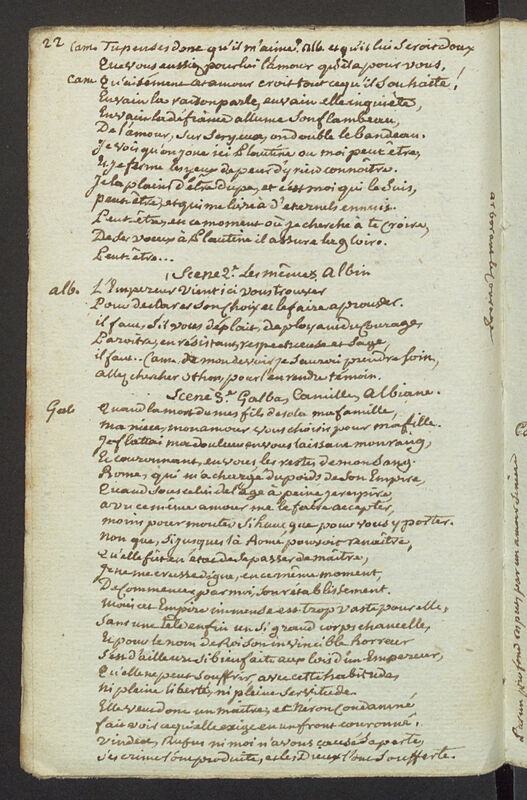 22 Cam Tu penses donc qu'il m'aime? Alb. et qu'il lui seroit doux
Que vous eussiez pour lui l'amour qu'il a pour vous,
Cam Qu'aisément l'amour croit tout ce qu'il souhaite!
En vain la raison parle, en vain elle inquiète,
En vain la défiance allume son flambeau,
De l'amour, sur ses yeux, on double le bandeau.
Je vois qu'on joue ici Plautine ou moi peut être,
Et je ferme les yeux de peur d'y rien connoître.
Je la plains d'être dupe, et c'est moi qui le suis,
peut être, et qui me livre à d'eternels ennuis.
Peut être, en ce moment où je cherche à te croire,
De ses voeux à Plautine il assure la gloire.
Peut être...
Scene 2e. Les mêmes, Albin
alb. L'Empereur vient ici vous trouver
Pour déclarer son choix et le faire aprouver.
il faut, s'il vous déplait, déployer du courage
Paroitre, en résistant, respectueuse et sage,
il faut.. Cam. de mon devoir je sauroi prendre soin,
allez chercher Othon, pour l'en rendre témoin.
Scene 3e. Galba, Camille, Albiane.
Gal Quand la mort de mes fils désola ma famille,
ma niece, mon amour vous choisit pour ma fille.
Je flattai ma douleur en vous laissant mon rang,
Et couronnant, en vous les restes de mon sang.
Rome, qui m'a chargé du poids de son Empire,
Quand sous celui de l'age à peine je respire,
a vu ce même amour me le faire accepter,
moins pour monter si haut, que pour vous y porter.
Non que, si jusques là Rome pouvoit renaître,
Qu'elle fût en état de se passer de maître,
Je ne me crusse digne, en ce même moment,
De commencer par moi son rétablissement.
mais cet Empire immense est trop vaste pour elle,
Sans une tête enfin un si grand corps chancelle,
Et pour le nom de Roi son invincible horreur
S'est d'ailleurs si bien faite aux lois d'un Empereur,
Qu'elle ne peut souffrir, avec cette habitude,
ni pleine liberté, ni pleine servitude.
Elle veut donc un maître, et Neron condamné
fait voir ce qu'elle exige en un front couronné.
Vindex, Rufus ni moi n'avons causé sa perte,
Ses crimes l'ont produite, et les Dieux l'ont soufferte.